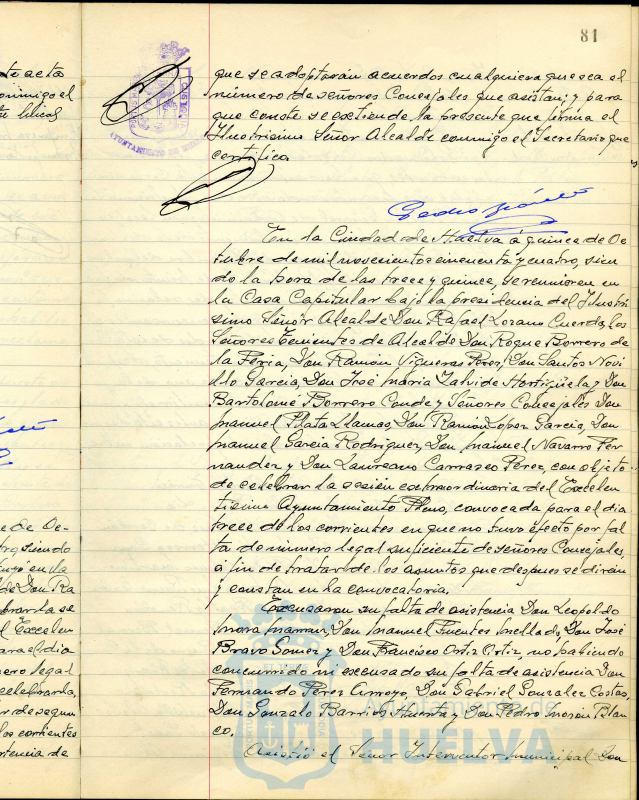 81
que se adoptarán acuerdos cualquiera que sea el
número de señores Concejales que asistan; y para
que conste se extiende la presente que firma el
Ilustrísimo Señor Alcalde conmigo el Secretario que
certifica
En la Ciudad de Huelva á quince de Oc-
tubre de mil novecientos cincuenta y cuatro, sien
do la hora de las trece y quince, se reunieron en
la Casa Capitular bajo la presidencia del Ilustrí
simo Señor Alcalde Don Rafael Lozano Cuerda, los
Señores Tenientes de Alcalde Don Roque Borrero de
la Feria, Don Ramón Vigueras Perez, Don Santos Novi
llo Garcia, Don José María Zalvide Hortigüela y Don
Bartolomé Borrero Conde y Señores Concejales Don
Manuel Plata Llamas, Don Ramón Lopez Garcia, Don
Manuel Garcia Rodriguez, Don Manuel Navarro Fer-
nandez y Don Laureano Carrasco Perez, con objeto
de celebrar la sesión extraordinaria del Excelen
tísimo Ayuntamiento Pleno, convocada para el dia
trece de los corrientes en que no tuvo efecto por fal
ta de número legal suficiente de señores Concejales,
á fin de tratar de los asuntos que despues se dirán
y constan en la convocatoria.
Excusaron su falta de asistencia Don Leopoldo
Mora Don Manuel Fuentes Don José
Bravo Gomez y Don Francisco Ortiz Ortiz, no habiendo
concurrido ni excusado su falta de asistencia Don
Fernando Perez Arroyo, Don Gabriel Gonzalez Costas,
Don Gonzalo Barrios Huerta y Don Pedro Morón Blan
co.
Asistió el Señor Interventor Municipal Don
Ayuntamiento de
HUELVA